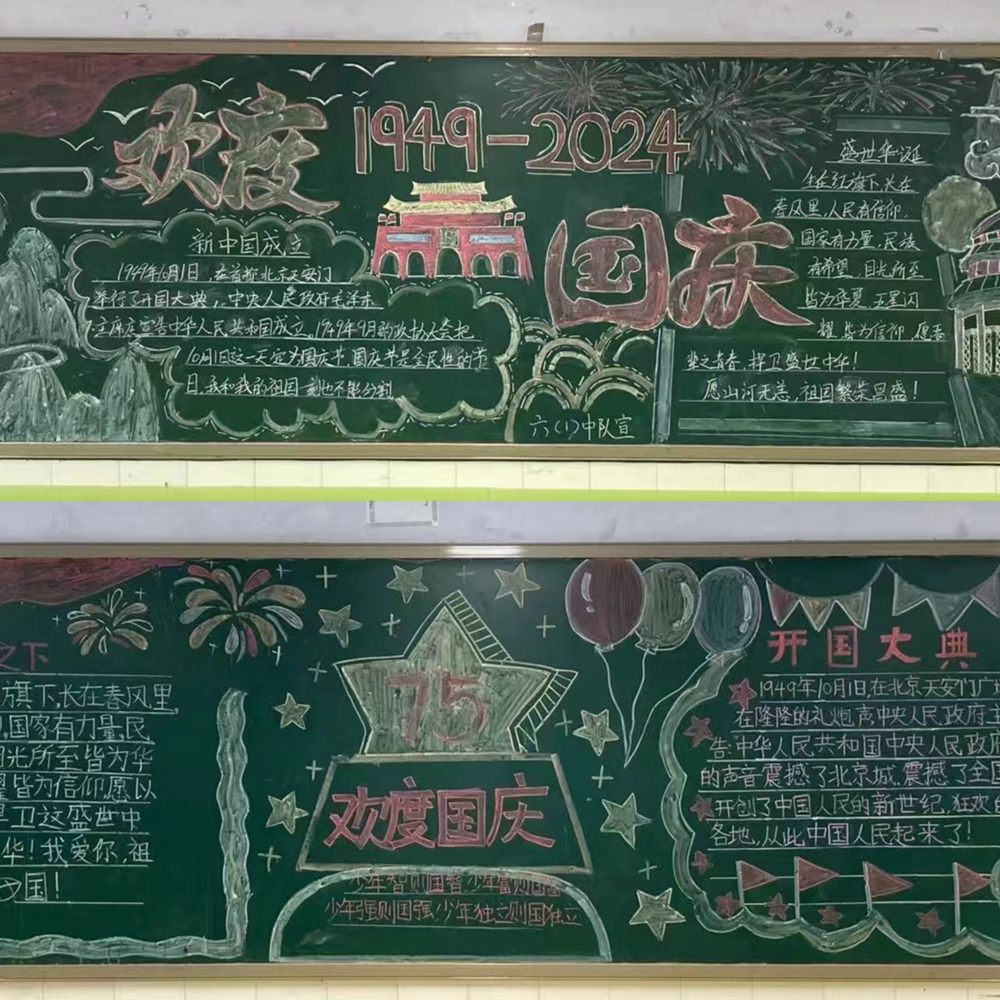 欢度
1949-2024
国庆
新中国成立
1949年10月1日,在首都北京天安门
举行了开国大典,中央人民政府毛泽东
主席庄宣告中华人民共和国成立。1949年9月的政协大会把
10月1日这一天定为国庆节,国庆节是全民性的节
日,我和我的祖国一刻也不能分割
六(1)中队宣
盛世华诞
生在红旗下,长在
春风里,人民有信仰,
国家有力量,民族
有希望,目光所至
皆为华夏,五星闪
耀皆为信仰,愿吾
辈之青春,捍卫盛世中华!
愿山河无恙,祖国繁荣昌盛!
之下
旗下,长在春风里
国家有力量,民
目光所至皆为华
耀皆为信仰,愿以
卫这盛世中
华!我爱你,祖
国!
75
欢度国庆
少年智则国智,少年富则国富
少年强则国强,少年独立则国独立
开国大典
1949年10月1日,在北京天安门广
在隆隆的礼炮声,中央人民政府主
告:中华人民共和国中央人民政府
的声音震撼了北京城,震撼了全国
开创了中国人民的新世纪,狂欢
各地,从此中国人民起来了!